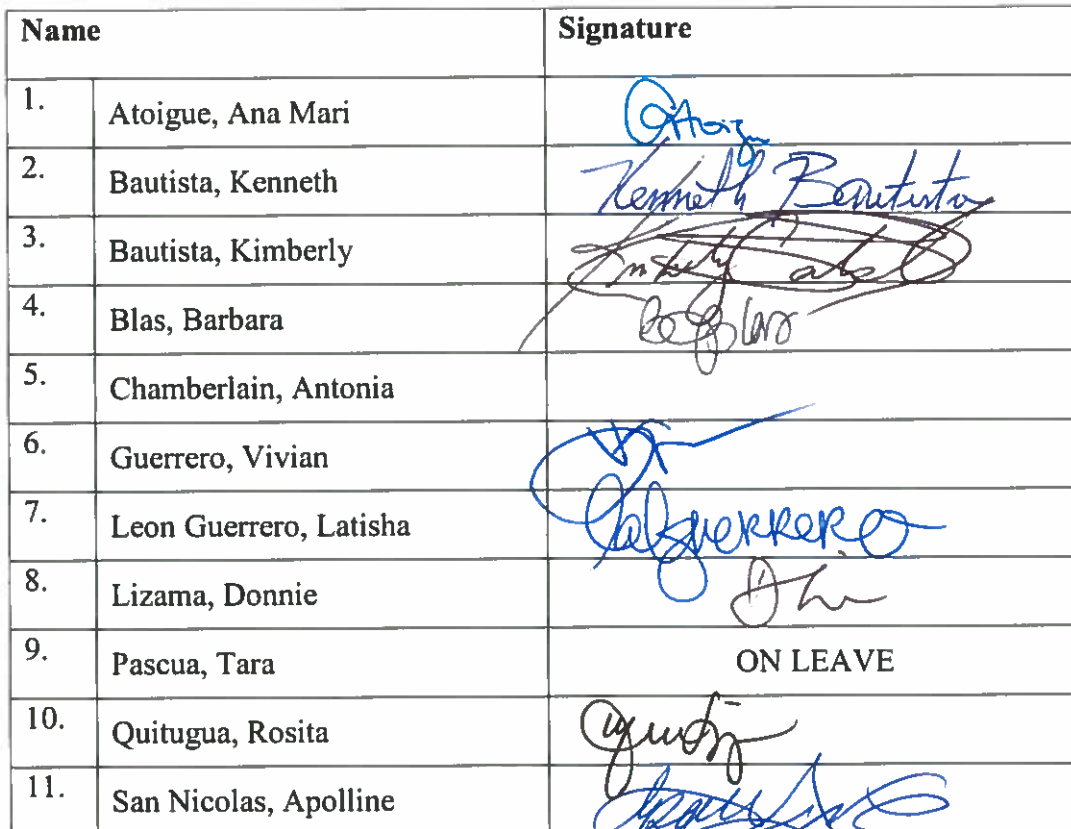 Name Signature
1. Atoigue, Ana Mari
2. Bautista, Kenneth Kenneth Bautista
3. Bautista, Kimberly
4. Blas, Barbara
5. Chamberlain, Antonia
6. Guerrero, Vivian
7. Leon Guerrero, Latisha
8. Lizama, Donnie
9. Pascua, Tara ON LEAVE
10. Quitugua, Rosita
11. San Nicolas, Apolline